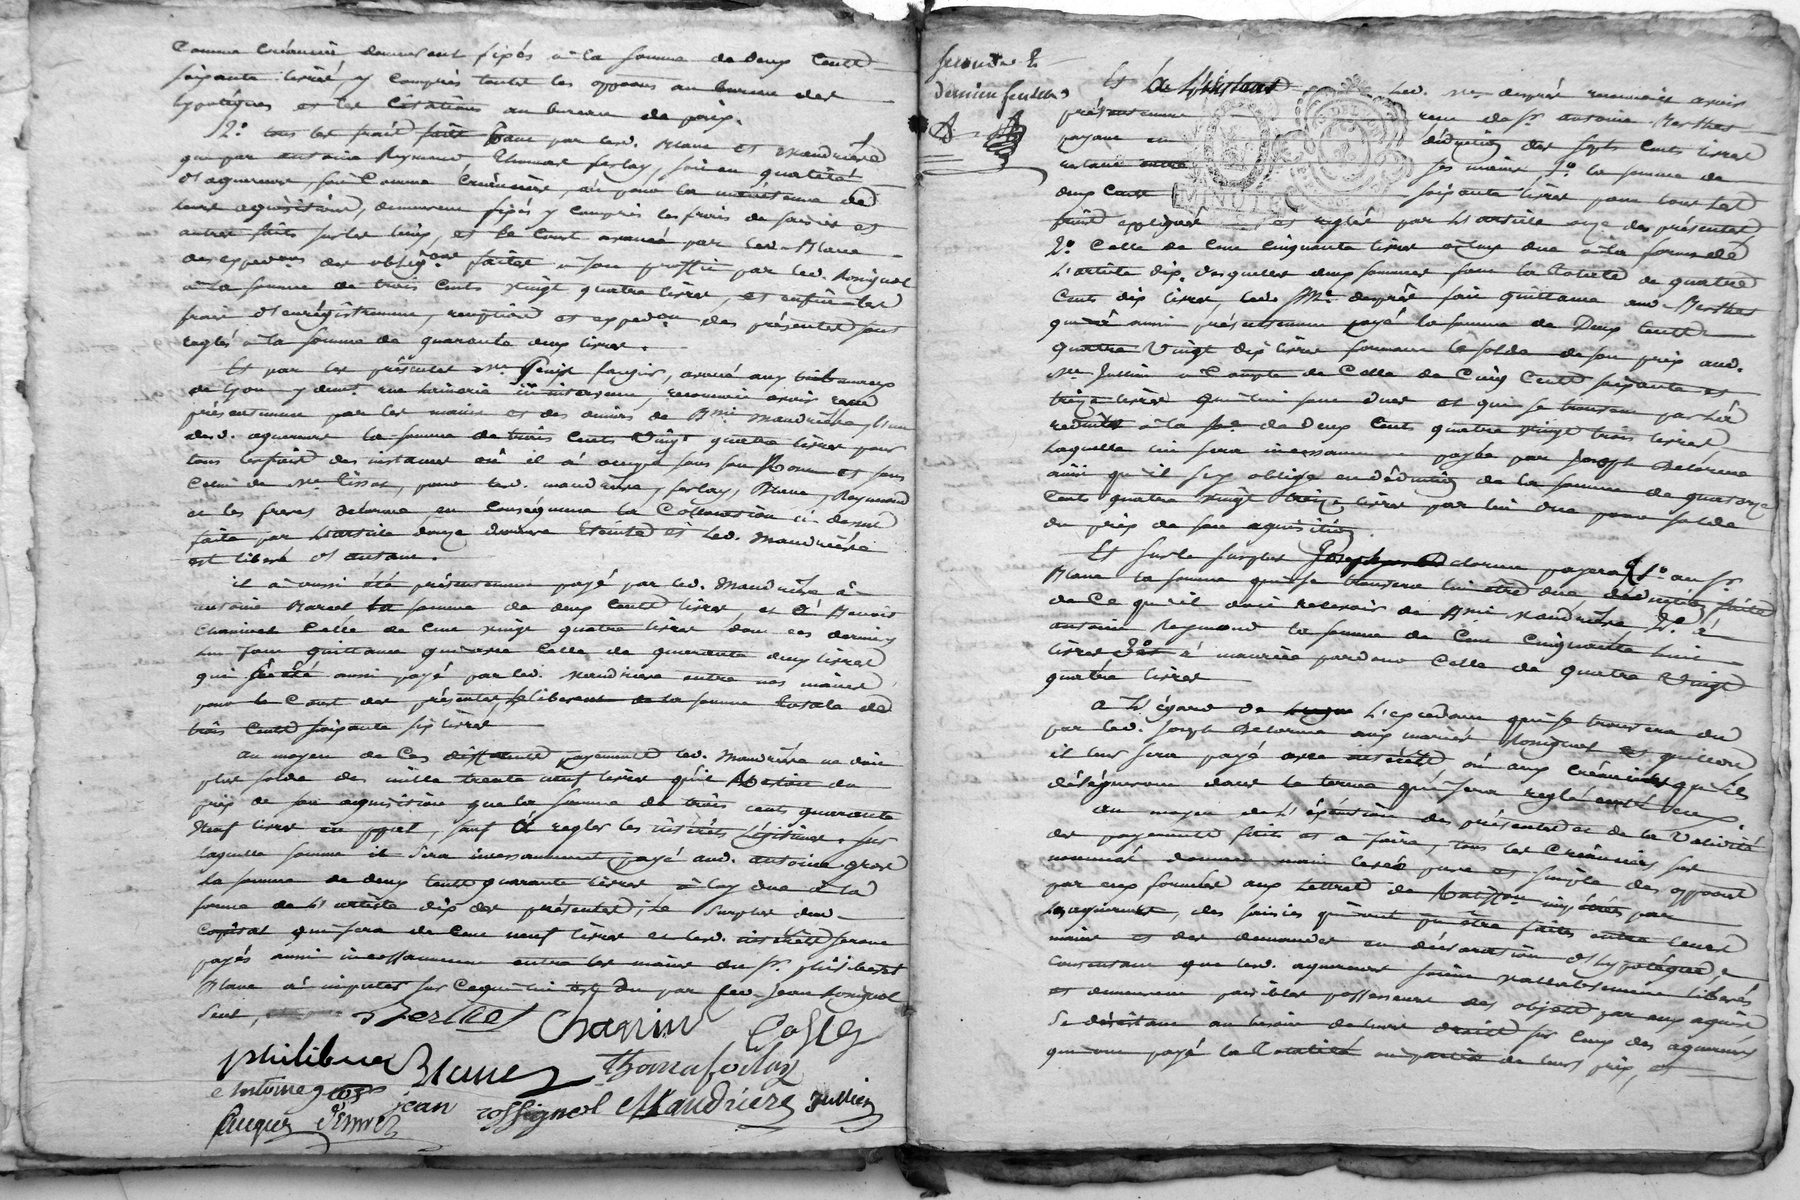 Comme Créancier, demeurent fixés à la somme de deux Cents
soixante livres, y compris toutes les oppoons au bureau des
hypotèques et les Citations au bureau de paix.
2.o tous les frais faits tant par led. Blanc et Mandrière
que par antoine Reymond, Thomas ferlay, soit en qualité
d'aquereurs, soit Comme Créanciers, ou pour la
leurs aquisitions, demeurent fixés y compris les frais de saisies et
autres faits sur les lieux, et le Cout avancé par led. Blanc
des expedons des obligons faites à son proffit par led. Rossignol
à la somme de trois Cents vingt quatre livres, et enfin les
frais d'enrégistrement, reception et expedon des présentes sont
reglés à la somme de quarante deux livres.
Et par les présentes Me farges, avoué aux tribunaux
de Lyon y demt. rue intervenu, reconnoit avoir reçu
présentement par les mains et des deniers de Bmi Mandrière, l'un
desd. aquereurs la somme de trois Cents vingt quatre livres pour
tous les frais des instances où il a occupé sous son Nom et sous
Celui de Me tissot, pour led. mandrière, ferlay, Blanc, Reymond
et les freres delorme, en Conséquence la Collocation ci dessus
faite par l'article douze demeure Eteinte et led. Mandrière
est libéré d'autant.
il a aussi été présentement payé par led. Mandrière à
antoine Marcel la somme de deux Cents livres, et à Benoit
Chanin Celle de Cent vingt quatre livres dont ces derniers
lui font quittance quarante deux livres
qui a été aussi payé par led. Mandrière entre nos mains
pour le Cout des présentes, le liberent de la somme totale de
trois Cents soixante six livres
au moyen de Ces différents payements led. Mandrière ne doit
plus solde des mille trente neuf livres qu'il du
prix de son aquisition que la somme de trois cents quarante
Neuf livres en ppal, sauf à regler les intérêts légitimes. sur
laquelle somme il sera incessamment payé aud. antoine gros
la somme de deux Cents quarante livres à luy due à la
forme de l'article dix des présentes; Le surplus dud.
Capital qui sera de Cent neuf livres et lesd. intérêts seront
payés aussi incessamment entre les mains du Sr. philibert
Blanc à imputer sur Ce qui lui est du par led. Jean Rossignol
seul,
Berthet Chanin Coste
philibert Blanc Thoma ferlay
Antoine gros jean rossignol Mandriere Jullien
second &
dernier feuillet
Et à l'instant led. Me desprès reconnoit avoir
présentement reçu de Sr. antoine Berthet
payant en déduction des sept Cents livres
ses mains, 1.o la somme de
deux Cents soixante livres pour tous les
frais expliqués et reglés par l'article onze des présentes
2.o Celle de Cent Cinquante livres à luy due à la forme de
L'article dix. desquelles deux sommes font la totalité de quatre
Cents dix livres, led. Me. desprès fait quittance aud. Berthet
qui a aussi présentement payé la somme de Deux Cents
quatre Vingt dix livres formant le solde de son prix aud.
Me Jullien à Compte de Celle de Cinq Cents soixante et
treize livres qui lui sont dues et qui se trouvent par là
reduites à la se. de Deux Cents quatre vingt trois livres
Laquelle lui sera incessamment payée par Joseph Delorme
ainsi qu'il s'y oblige en déduction de la somme de quatorze
Cents quatre vingt treize livres par lui due pour solde
du prix de son aquisition
Et sur le surplus Joseph Delorme payera 1.o au Sr.
Blanc la somme qui se trouvera lui être due déduction faite
de Ce qu'il doit recevoir de Bmi Mandrière 2.o à
antoine Reymond la somme de Cent Cinquante huit
livres 3.o à maurice pardono Celle de quatre Vingt
quatre livres
A L'égard de L'excedant qui se trouvera du
par led. Joseph Delorme aux mariés Rossignol et
il leur sera payé avec intérêts ou aux Créanciers qu'ils
délégueront dans le terme qui sera reglé entr'eux.
Au moyen de L'exécution des présentes et de la Validité
des payements faits et à faire, tous les Créanciers sus
nommés donnent main levée pure et simple des oppoons
par eux formées aux Lettres de Ratiffon impétrées par
les aquereurs, des saisies qui ont pu être faites entre leurs
mains et des demandes en déclaration d'hypotèques,
Consentent que lesd. aquereurs soient valablement liberés
et demeurent paisibles possesseurs des objets par eux aquis
se désistent au besoin de tous droits sur Ceux des aquereurs
qui ont payé la Totalité ou partie de leurs prix, et
MINUTE